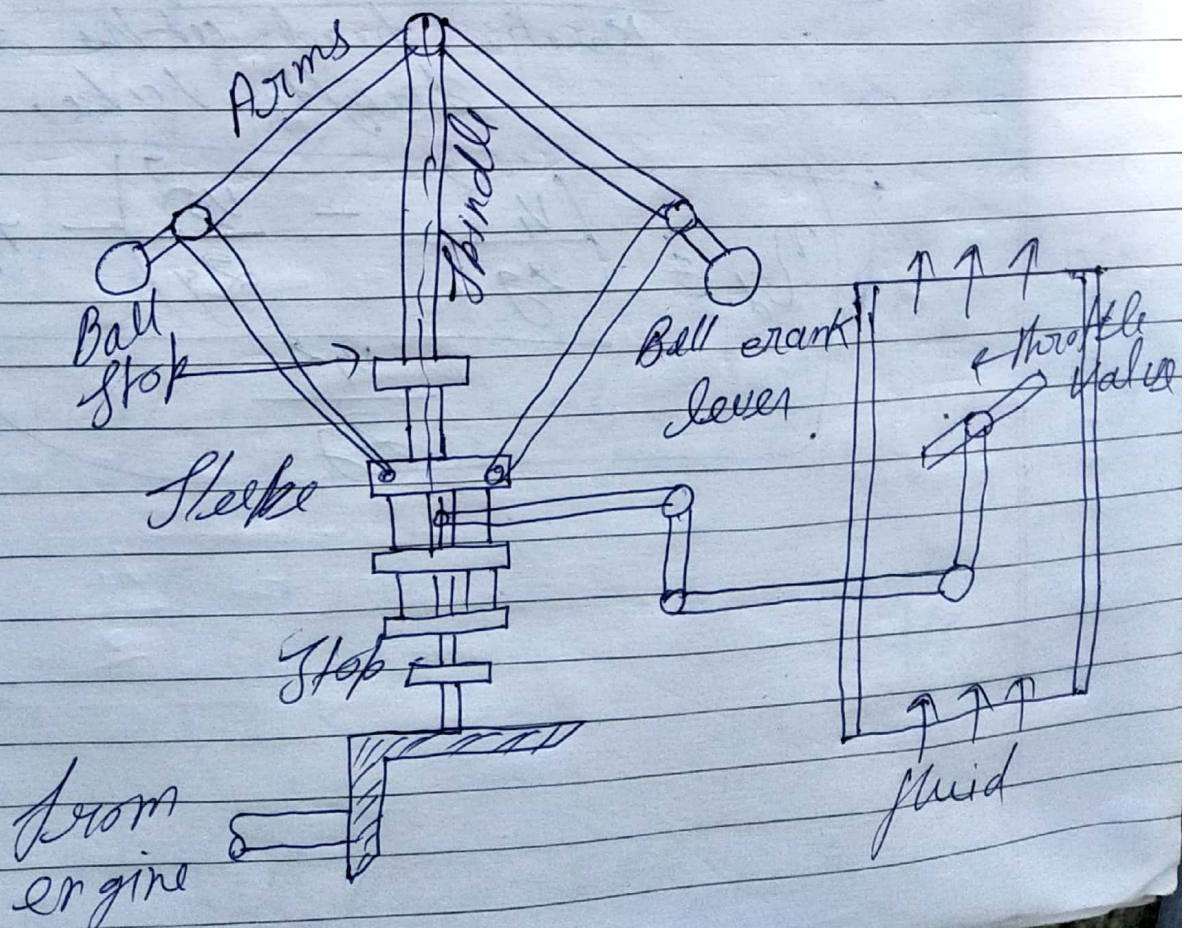 Arms
Spindle
Ball
Stop
Ball crank
lever
throttle
valve
Sleeve
Stop
from
engine
fluid